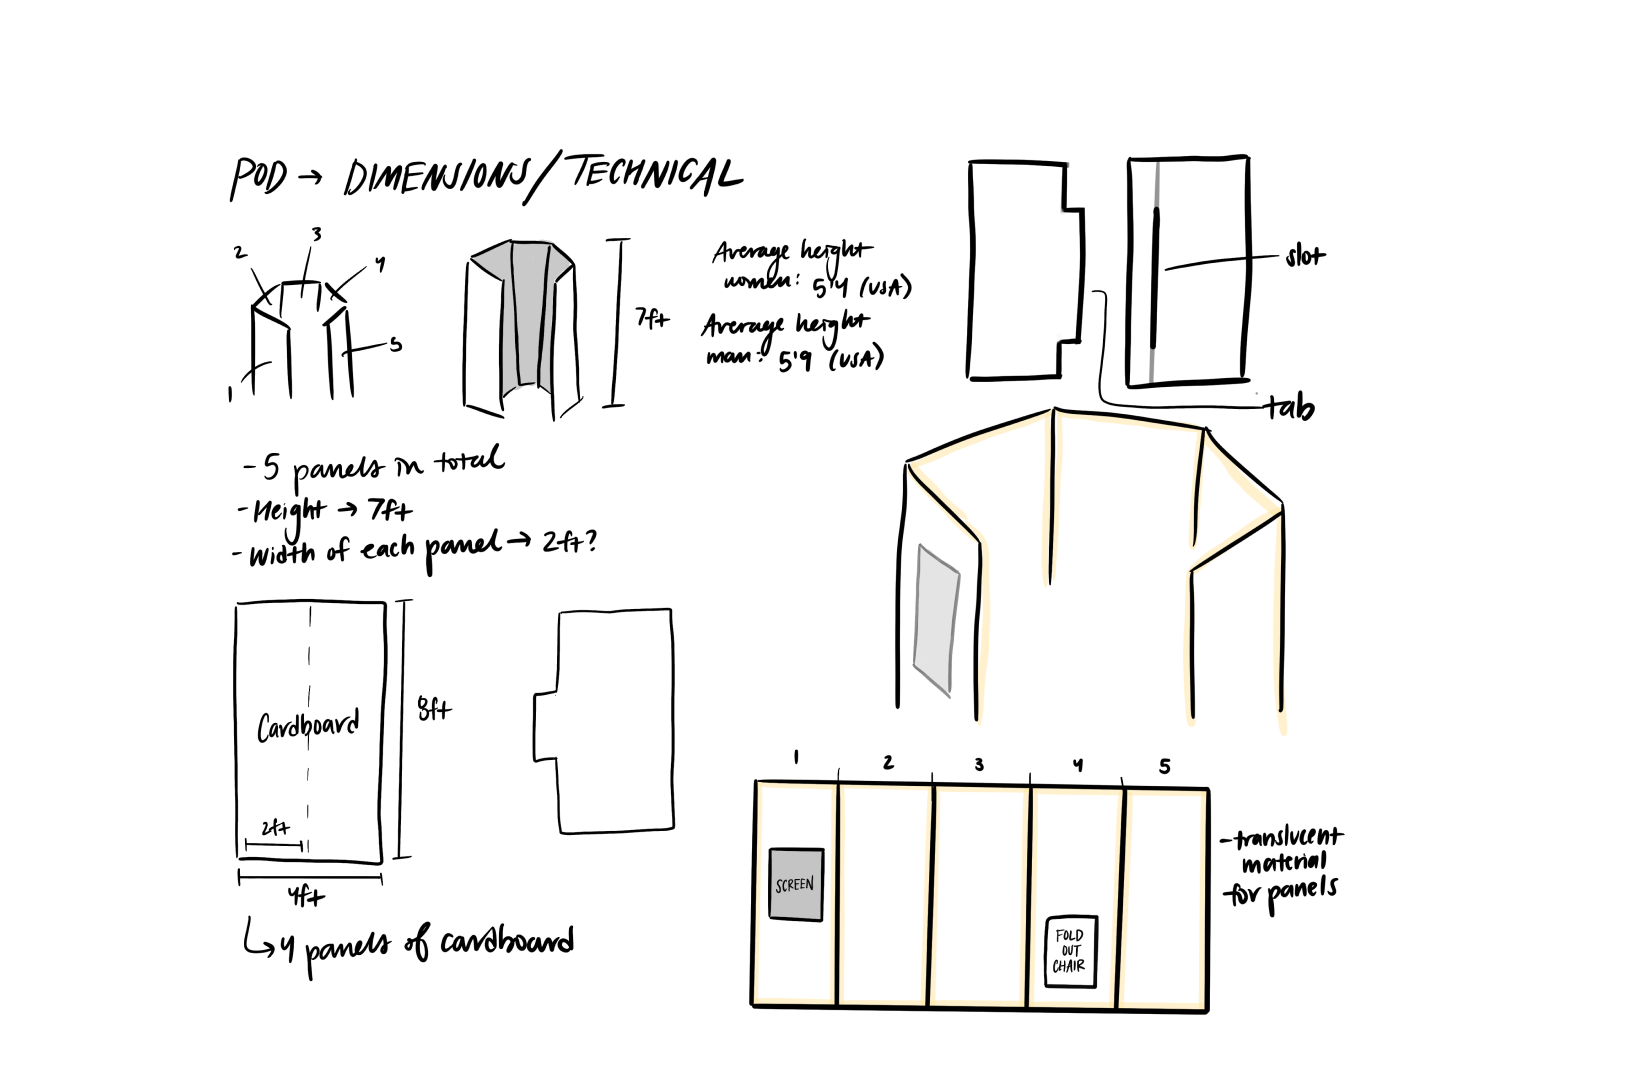 POD → DIMENSIONS/TECHNICAL
1
2
3
4
5
7ft
Average height
women: 5'4 (USA)
Average height
man: 5'9 (USA)
slot
tab
- 5 panels in total
- Height → 7ft
- Width of each panel → 2ft?
Cardboard
8ft
2ft
4ft
↳ 4 panels of cardboard
1 2 3 4 5
SCREEN
FOLD
OUT
CHAIR
- translucent
material
for panels